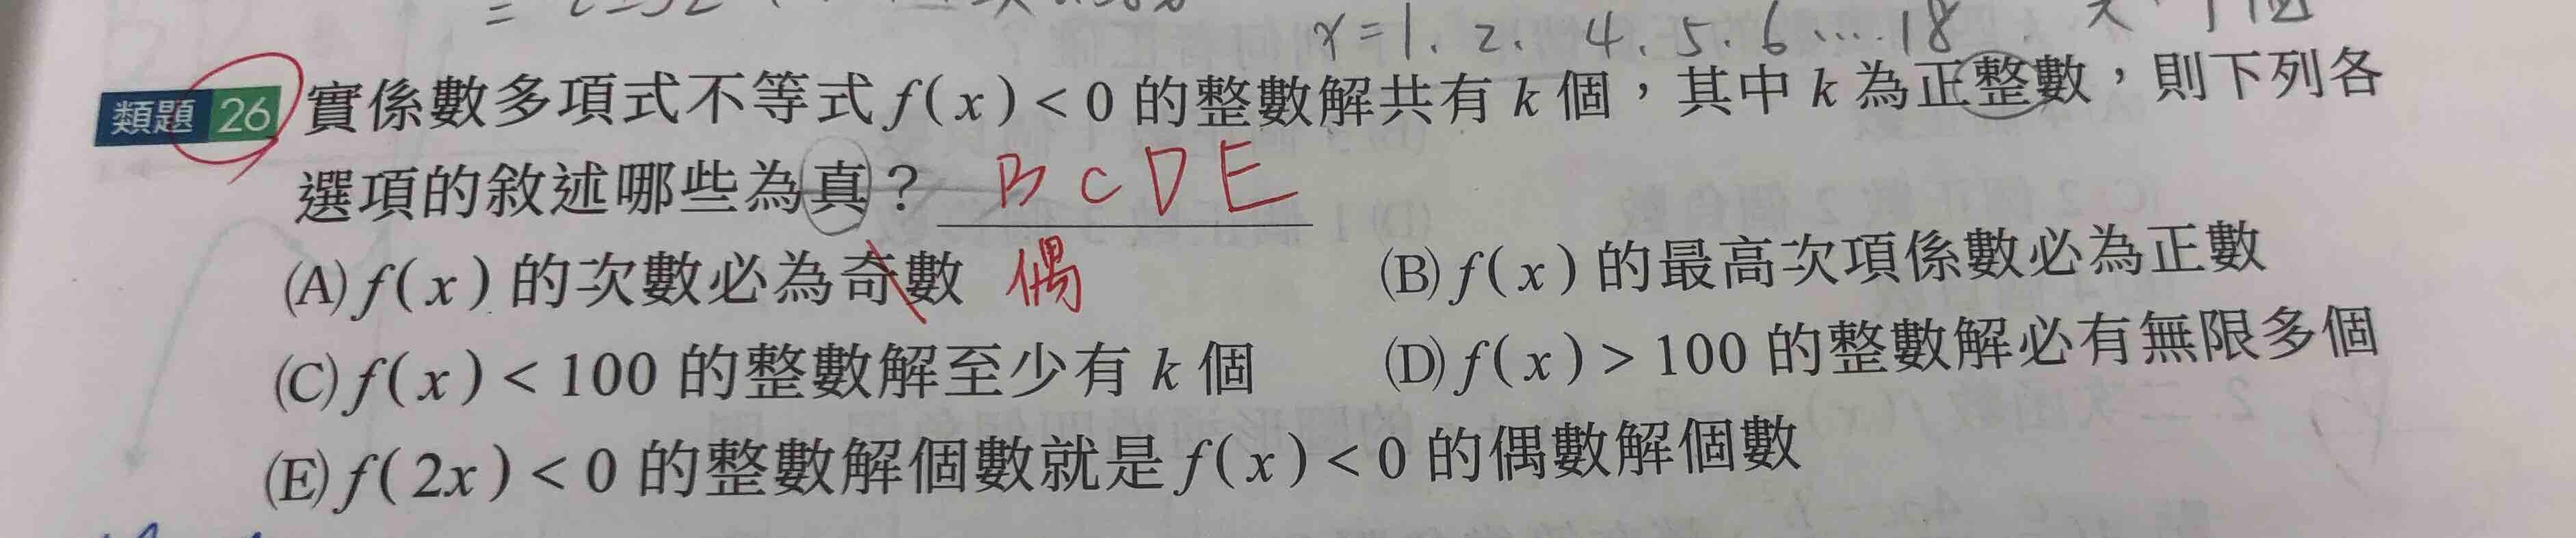 x=1、2、4、5、6…18
類題26 實係數多項式不等式 f(x)<0 的整數解共有 k 個，其中 k 為正整數，則下列各
選項的敘述哪些為真？ BCDE
(A) f(x) 的次數必為奇數 偶 (B) f(x) 的最高次項係數必為正數
(C) f(x)<100 的整數解至少有 k 個 (D) f(x)>100 的整數解必有無限多個
(E) f(2x)<0 的整數解個數就是 f(x)<0 的偶數解個數